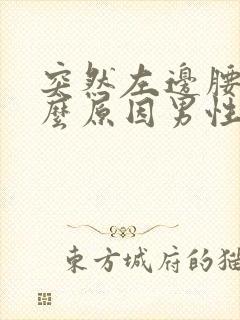 突然左邊腰
麼原因男性
東方城府的猫